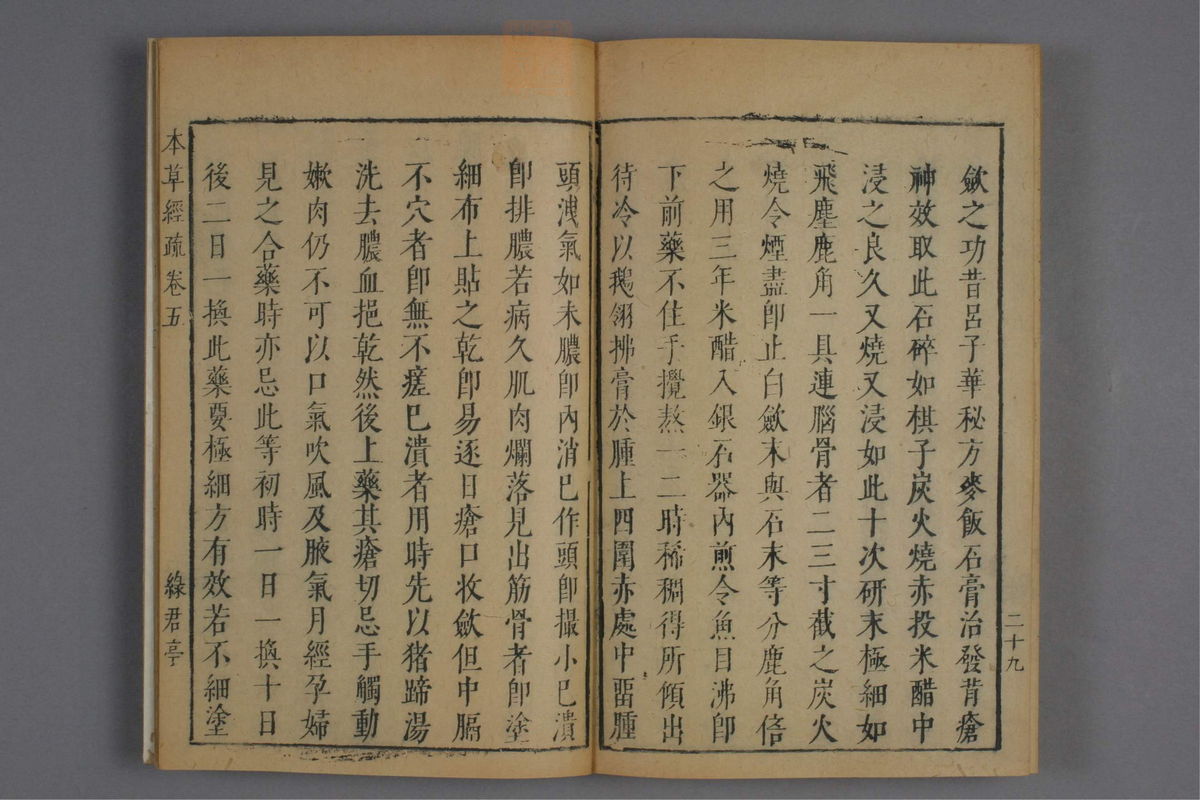 二十九
歛之功昔呂子華秘方麥飯石膏治發背瘡
神效取此石碎如棋子炭火燒赤投米醋中
浸之良久又燒又浸如此十次研末極細如
飛塵鹿角一具連腦骨者二三寸截之炭火
燒令煙盡卽止白歛末與石末等分鹿角倍
之用三年米醋入銀石器內煎令魚目沸卽
下前藥不住手攪熬一二時稀稠得所傾出
待冷以鵝翎拂膏於腫上四圍赤處中畱腫
頭洩氣如未膿卽內消已作頭卽撮小已潰
卽排膿若病久肌肉爛落見出筋骨者卽塗
細布上貼之乾卽易逐日瘡口收歛但中膈
不穴者卽無不瘥已潰者用時先以猪蹄湯
洗去膿血挹乾然後上藥其瘡切忌手觸動
嫩肉仍不可以口氣吹風及腋氣月經孕婦
見之合藥時亦忌此等初時一日一換十日
後二日一換此藥要極細方有效若不細塗
本草經疏 卷五 綠君亭